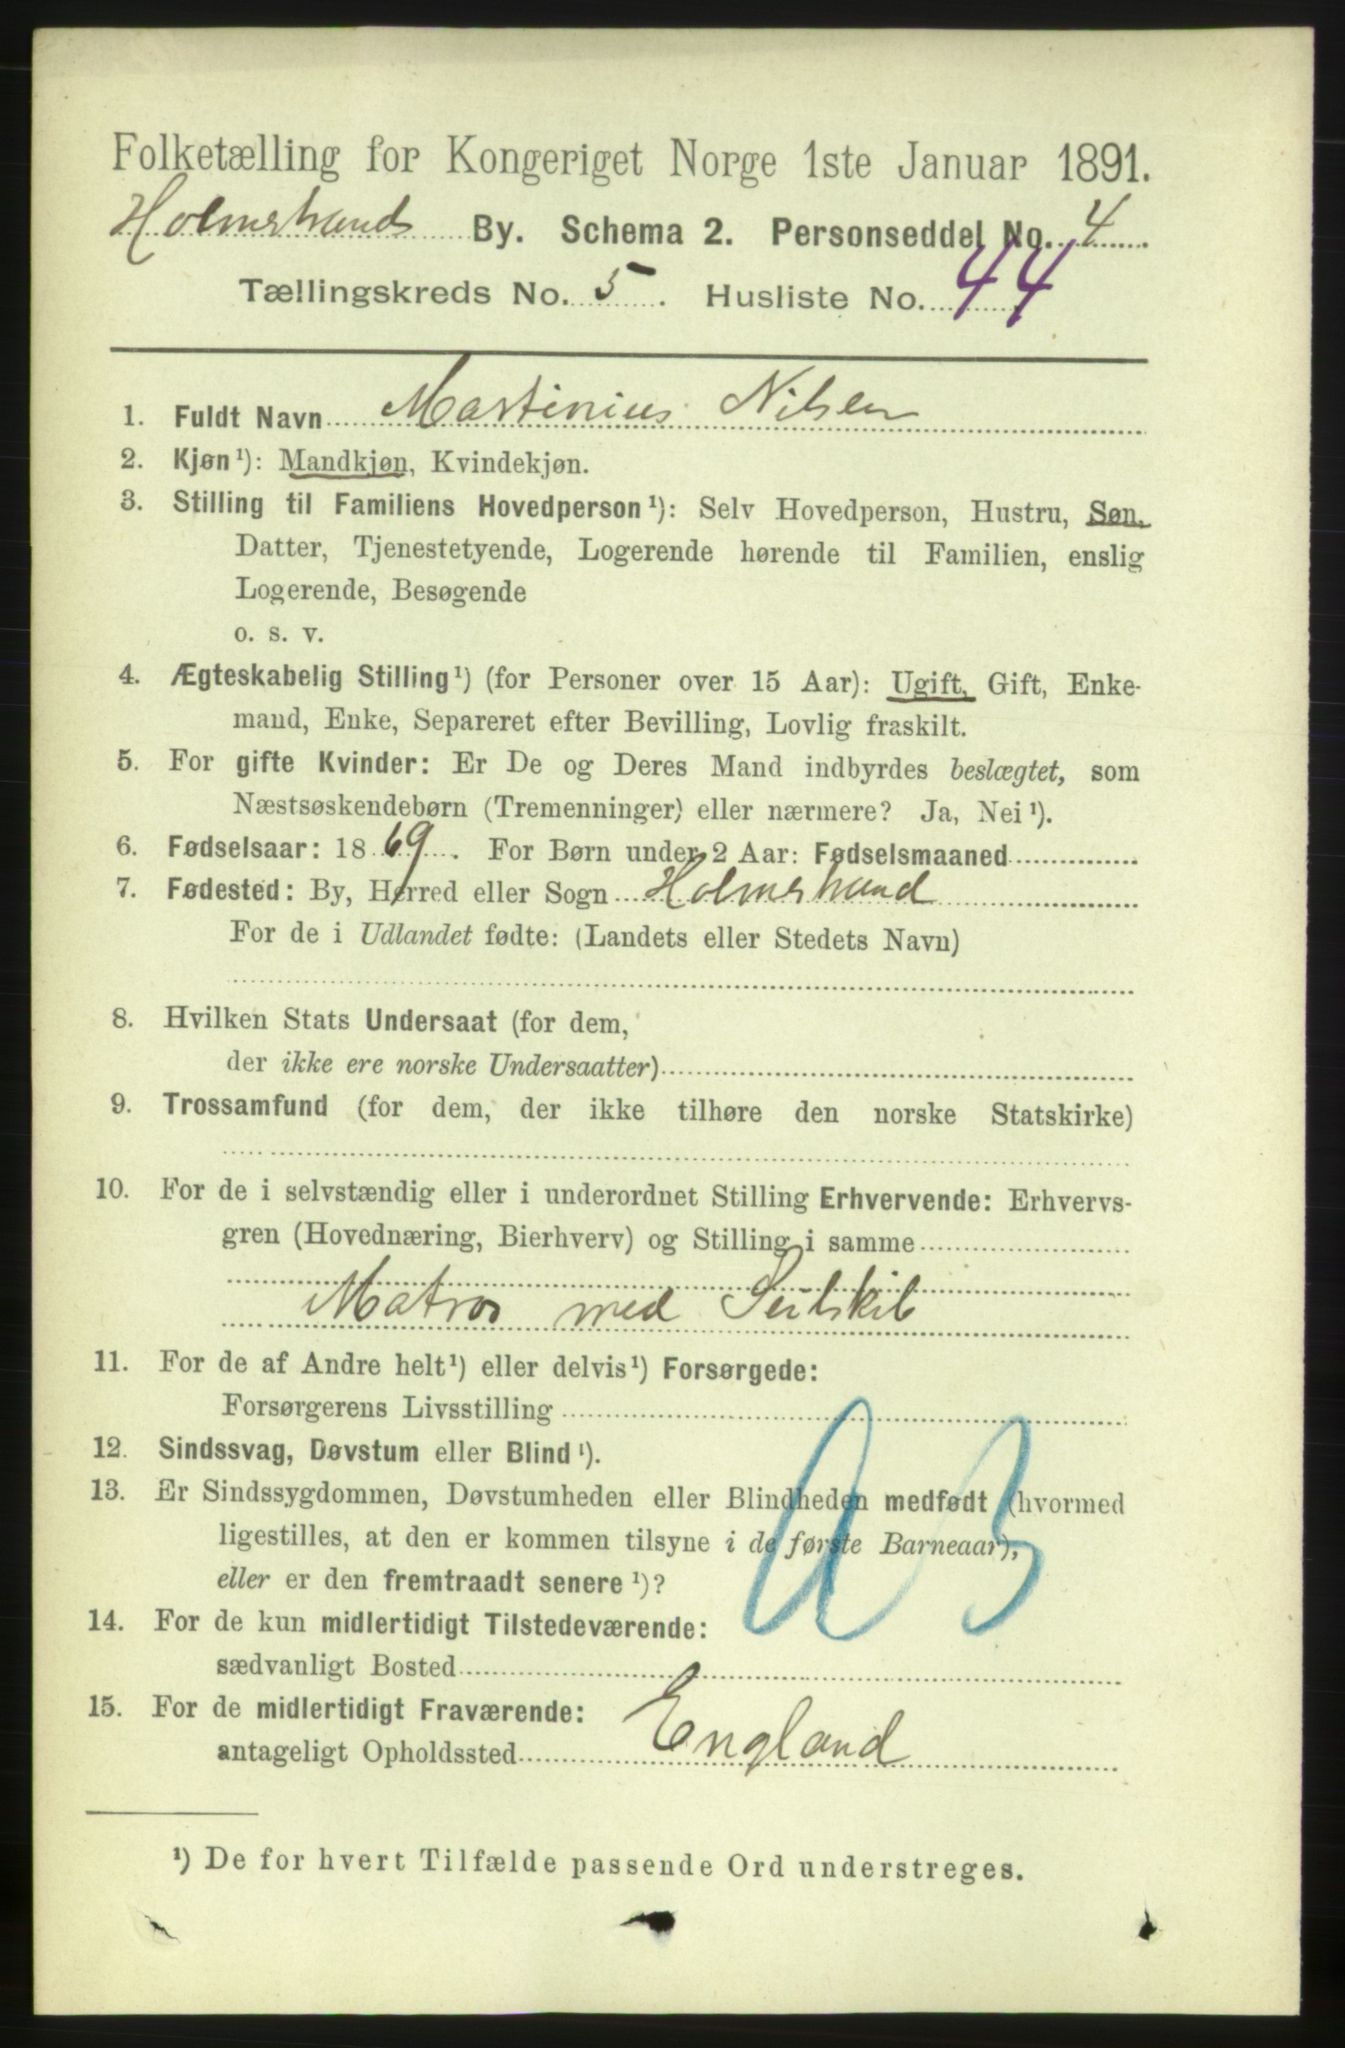 Folketælling for Kongeriget Norge 1ste Januar 1891.
Holmestrands By. Schema 2. Personseddel No. 4
Tællingskreds No. 5. Husliste No. 44
1. Fuldt Navn Martinius Nilsen
2. Kjøn¹): Mandkjøn, Kvindekjøn.
3. Stilling til Familiens Hovedperson¹): Selv Hovedperson, Hustru, Søn,
Datter, Tjenestetyende, Logerende hørende til Familien, enslig
Logerende, Besøgende
o. s. v.
4. Ægteskabelig Stilling¹) (for Personer over 15 Aar): Ugift, Gift, Enke-
mand, Enke, Separeret efter Bevilling, Lovlig fraskilt.
5. For gifte Kvinder: Er De og Deres Mand indbyrdes beslægtet, som
Næstsøskendebørn (Tremenninger) eller nærmere? Ja, Nei¹).
6. Fødselsaar: 1869. For Børn under 2 Aar: Fødselsmaaned
7. Fødested: By, Herred eller Sogn Holmestrand
For de i Udlandet fødte: (Landets eller Stedets Navn)
8. Hvilken Stats Undersaat (for dem,
der ikke ere norske Undersaatter)
9. Trossamfund (for dem, der ikke tilhøre den norske Statskirke)
10. For de i selvstændig eller i underordnet Stilling Erhvervende: Erhvervs-
gren (Hovednæring, Bierhverv) og Stilling i samme
Matros med Seilskib
11. For de af Andre helt¹) eller delvis¹) Forsørgede:
Forsørgerens Livsstilling
12. Sindssvag, Døvstum eller Blind¹).
13. Er Sindssygdommen, Døvstumheden eller Blindheden medfødt (hvormed
ligestilles, at den er kommen tilsyne i de første Barneaar),
eller er den fremtraadt senere¹)?
14. For de kun midlertidigt Tilstedeværende:
sædvanligt Bosted
15. For de midlertidigt Fraværende:
antageligt Opholdssted England
¹) De for hvert Tilfælde passende Ord understreges.